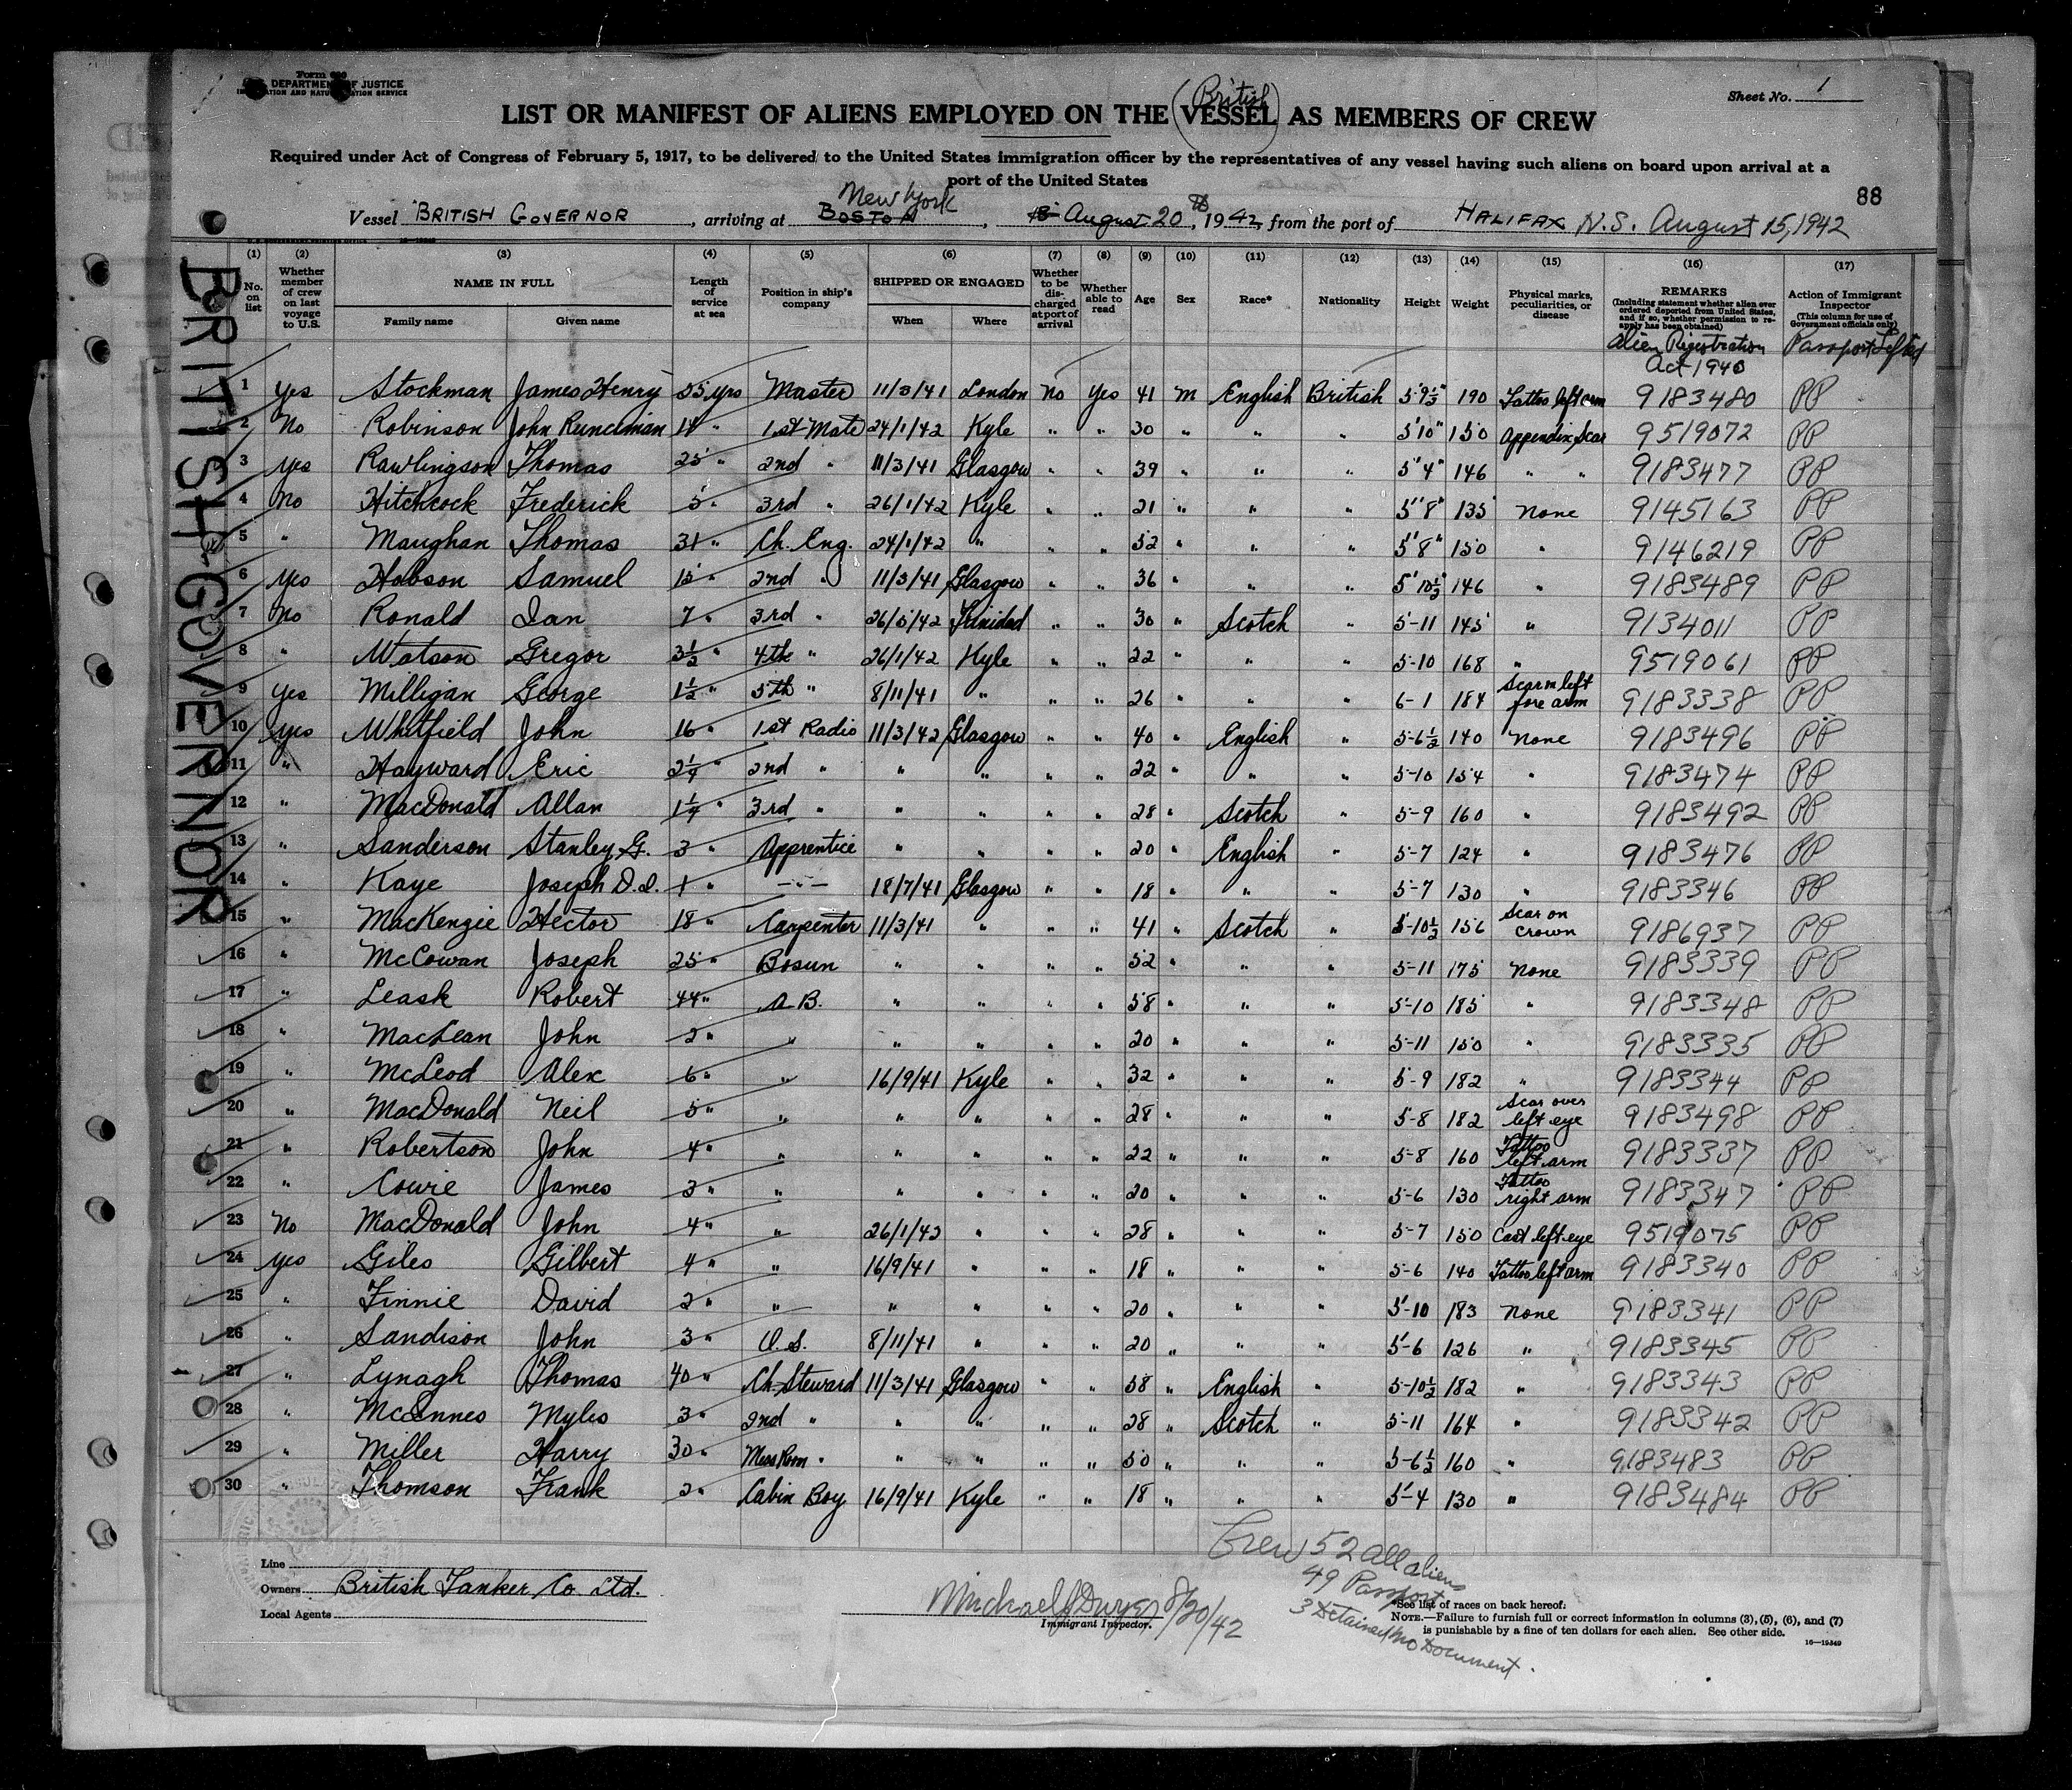 Form 680
DEPARTMENT OF JUSTICE
IMMIGRATION AND NATURALIZATION SERVICE
Sheet No. 1
British
LIST OR MANIFEST OF ALIENS EMPLOYED ON THE VESSEL AS MEMBERS OF CREW
Required under Act of Congress of February 5, 1917, to be delivered to the United States immigration officer by the representatives of any vessel having such aliens on board upon arrival at a
port of the United States
88
New York
Vessel BRITISH GOVERNOR, arriving at BOSTON, August 20th, 1942, from the port of HALIFAX N.S. August 15, 1942
BRITISH GOVERNOR
(1) (2) (3) (4) (5) (6) (7) (8) (9) (10) (11) (12) (13) (14) (15) (16) (17)
No. on list
Whether member of crew on last voyage to U.S.
NAME IN FULL
Family name Given name
Length of service at sea
Position in ship's company
SHIPPED OR ENGAGED
When Where
Whether to be discharged at port of arrival
Whether able to read
Age Sex Race* Nationality Height Weight
Physical marks, peculiarities, or disease
REMARKS
(Including statement whether alien ever ordered deported from United States, and if so, whether permission to reapply has been obtained)
Action of Immigrant Inspector
(This column for use of Government officials only)
Alien Registration Act 1940
Passport Lifted
1 Yes Stockman James Henry 25 yrs Master 11/3/41 London No Yes 41 M English British 5'9½" 190 Tattoo left arm 9183480 PP
2 No Robinson John Runciman 14 " 1st Mate 24/1/42 Kyle " " 30 " " " 5'10" 150 Appendix Scar 9519072 PP
3 Yes Rawlingson Thomas 25 " 2nd " 11/3/41 Glasgow " " 39 " " " 5'4" 146 " " 9183477 PP
4 No Hitchcock Frederick 5 " 3rd " 26/1/42 Kyle " " 21 " " " 5'8" 135 None 9145163 PP
5 " Maughan Thomas 31 " Ch. Eng. 24/1/42 " " " 52 " " " 5'8" 150 " 9146219 PP
6 Yes Hobson Samuel 15 " 2nd " 11/3/41 Glasgow " " 36 " " " 5'10½" 146 " 9183489 PP
7 No Ronald Ian 7 " 3rd " 26/5/42 Trinidad " " 30 " Scotch " 5-11 145 " 9134011 PP
8 " Watson Gregor 3½ " 4th " 26/1/42 Kyle " " 22 " " " 5-10 168 " 9519061 PP
9 Yes Milligan George 1½ " 5th " 8/11/41 " " " 26 " " " 6-1 184 Scar on left fore arm 9183338 PP
10 Yes Whitfield John 16 " 1st Radio 11/3/42 Glasgow " " 40 " English " 5-6½ 140 None 9183496 PP
11 " Hayward Eric 2¼ " 2nd " " " " " 22 " " " 5-10 154 " 9183474 PP
12 " MacDonald Allan 1¼ " 3rd " " " " " 28 " Scotch " 5-9 160 " 9183492 PP
13 " Sanderson Stanley G. 3 " Apprentice " " " " 20 " English " 5-7 124 " 9183476 PP
14 " Kaye Joseph D.I. 1 " -"- 18/7/41 Glasgow " " 18 " " " 5-7 130 " 9183346 PP
15 " MacKenzie Hector 18 " Carpenter 11/3/41 " " " 41 " Scotch " 5-10½ 156 Scar on crown 9186937 PP
16 " McCowan Joseph 25 " Bosun " " " " 52 " " " 5-11 175 None 9183339 PP
17 " Leask Robert 44 " A.B. " " " " 58 " " " 5-10 185 " 9183348 PP
18 " MacLean John 2 " " " " " " 20 " " " 5-11 150 " 9183335 PP
19 " McLeod Alex 6 " " 16/9/41 Kyle " " 32 " " " 5-9 182 " 9183344 PP
20 " MacDonald Neil 5 " " " " " " 28 " " " 5-8 182 Scar over left eye 9183498 PP
21 " Robertson John 4 " " " " " " 22 " " " 5-8 160 Tattoo left arm 9183337 PP
22 " Cowie James 3 " " " " " " 20 " " " 5-6 130 Tattoo right arm 9183347 PP
23 No MacDonald John 4 " " 26/1/42 " " " 28 " " " 5-7 150 Cast left eye 9519075 PP
24 Yes Giles Gilbert 4 " " 16/9/41 " " " 18 " " " 5-6 140 Tattoo left arm 9183340 PP
25 " Finnie David 2 " " " " " " 20 " " " 5-10 183 None 9183341 PP
26 " Sandison John 3 " O.S. 8/11/41 " " " 20 " " " 5-6 126 " 9183345 PP
27 " Lynagh Thomas 40 " Ch. Steward 11/3/41 Glasgow " " 58 " English " 5-10½ 182 " 9183343 PP
28 " McInnes Myles 3 " 2nd " " " " " 28 " Scotch " 5-11 164 " 9183342 PP
29 " Miller Harry 30 " Mess Room " " " " " 50 " " " 5-6½ 160 " 9183483 PP
30 " Thomson Frank 2 " Cabin Boy 16/9/41 Kyle " " 18 " " " 5-4 130 " 9183484 PP
Crew 52 all aliens
49 Passport
3 Detained no Document.
Line
Owners British Tanker Co Ltd.
Local Agents
Michael J Dwyer 8/20/42
Immigrant Inspector.
*See list of races on back hereof.
NOTE.—Failure to furnish full or correct information in columns (3), (5), (6), and (7)
is punishable by a fine of ten dollars for each alien. See other side.
16—19349